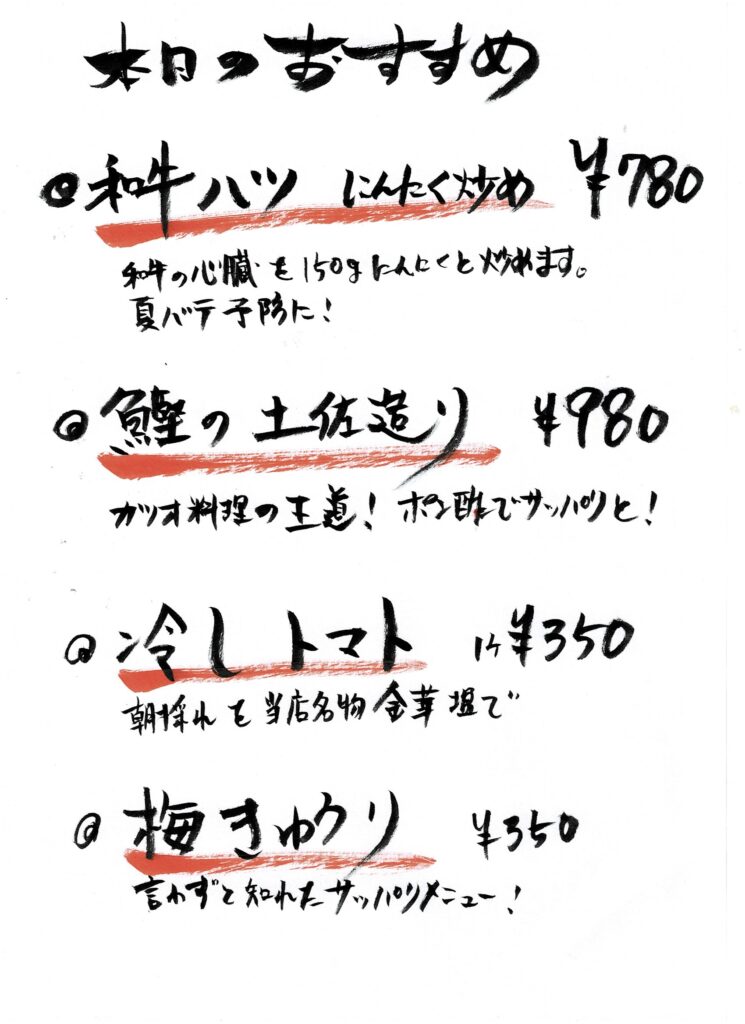 本日のおすすめ
◎和牛ハツ にんにく炒め ¥780
和牛の心臓を150gにんにくと炒めます。
夏バテ予防に!
◎鰹の土佐造り ¥980
カツオ料理の王道!ポン酢でサッパリと!
◎冷しトマト 1ケ¥350
朝採れを当店名物金華塩で
◎梅きゅうり ¥350
言わずと知れたサッパリメニュー!